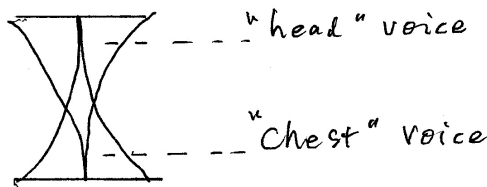 "head" voice
"Chest" voice